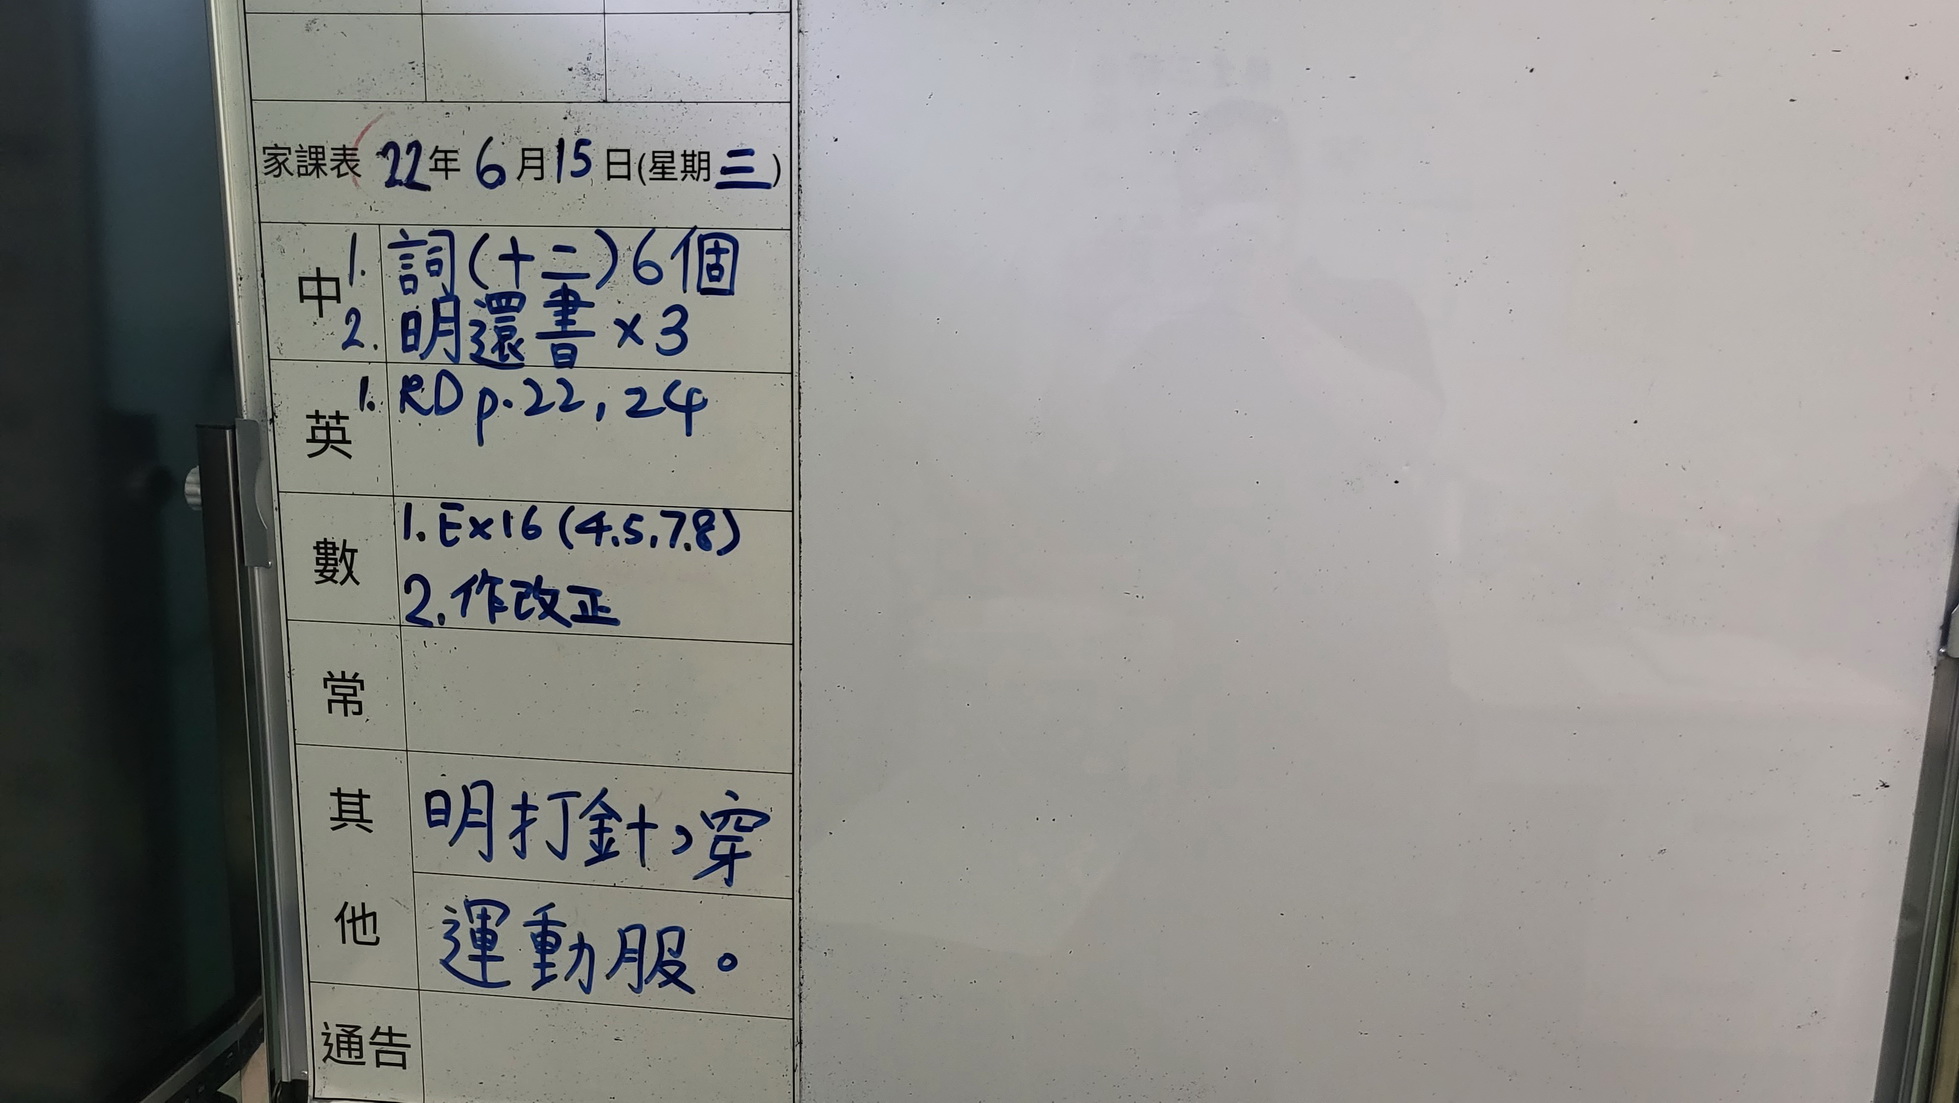 家課表 22年 6月15日(星期三)
中 1. 詞(十二)6個
2. 明還書×3
英 1. RD p.22, 24
數 1. Ex16 (4.5.7.8)
2. 作改正
常
其他 明打針,穿
運動服。
通告